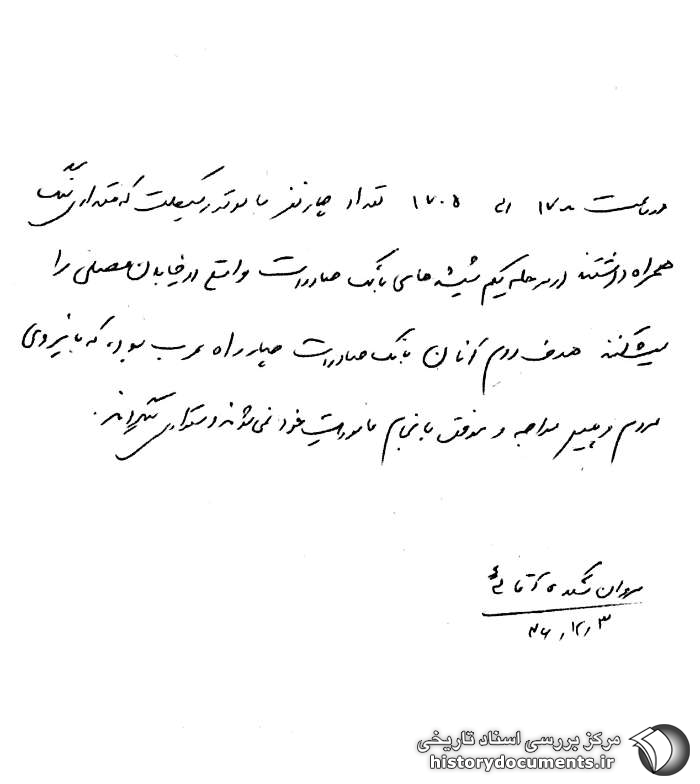 در ساعت ۱۷۰۰ الی ۱۷۰۵ تعداد چهار نفر با موتورسیکلت که مقداری سنگ
همراه داشتند در مرحله یکم شیشه‌های بانک صادرات واقع در خیابان مصلی را
میشکنند هدف دوم آنان بانک صادرات چهار راه عرب بوده که با نیروی
مردم و پلیس مواجه و موفق بانجام ماموریت خود نمی‌شوند و متواری میگردند.
سروان آقائی
۳ر۱۲ر۳۶
مرکز بررسی اسناد تاریخی
historydocuments.ir